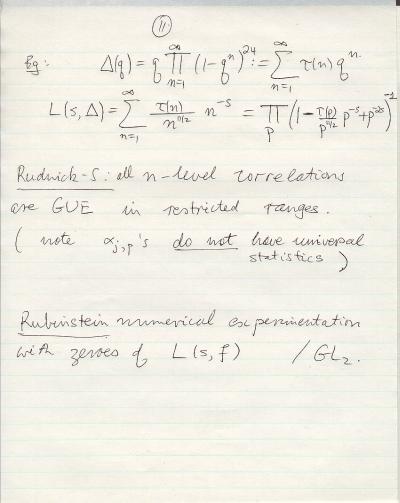 11
Eg: Δ(q) = q ∏_{n=1}^{∞} (1-q^n)^{24} := ∑_{n=1}^{∞} τ(n) q^n.
L(s, Δ) = ∑_{n=1}^{∞} τ(n)/n^{11/2} n^{-s} = ∏_p (1 - τ(p)/p^{11/2} p^{-s} + p^{-2s})^{-1}
Rudnick-S: all n-level correlations
are GUE in restricted ranges.
( note α_{j,p}'s do not have universal
statistics )
Rubinstein numerical experimentation
with zeroes of L(s, f) /GL_2.